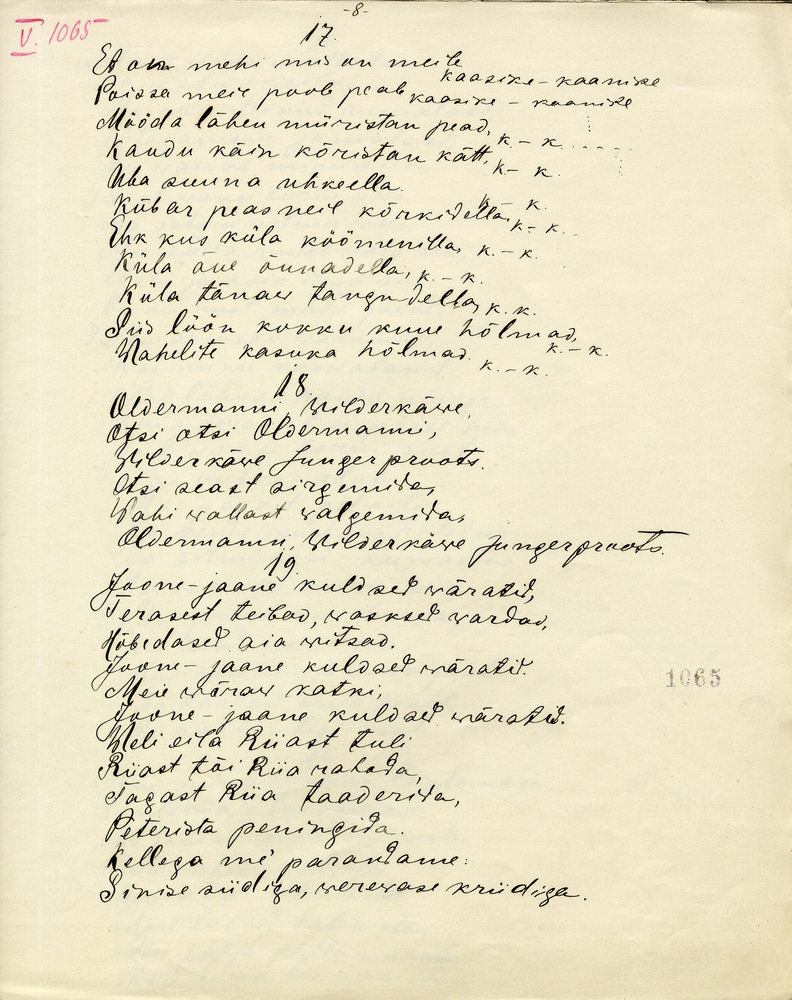 -8-
V. 1065
17.
Et on mehi mis on meile kaasike - kaanike
Poissa meil poob peab kaasike - kaanike
Mööda lähen müristan pead, k. - k. . . . .
Kaudu käin kõristan kätt, k. - k.
Uba suuna uhkeella. k. - k.
Kübar peas neil kõrkidella, k. - k. -
Ehk kus küla köömenilla, k. - k.
Küla õue õunadella, k. - k.
Küla tänaw tangudella, k. k.
Siis löön kokku kuue hõlmad, k. - k.
Wahelite kasuka hõlmad. k. - k.
18.
Oldermanni, Wilderkäwe,
Otsi otsi Oldermanni,
Wilderkäwe Jungerproots.
Otsi seast sirgemida,
Wahi wallast walgemida,
Oldermanni, Wilderkäwe Jungerproots.
19
Joone-jaane kuldsed wäratid,
Terasest teibad, wasksed wardad,
Hõbedased aia witsad.
Joone-jaane kuldsed wäratid.
Meie wäraw katki,
Joone-jaane kuldsed wäratid.
Weli eila Riiast tuli
Riiast tõi Riia rahada,
Tagast Riia taaderida,
Peterista peningida.
Kellega me' parandame:
Sinise siidiga, werewase kriidiga.
1065